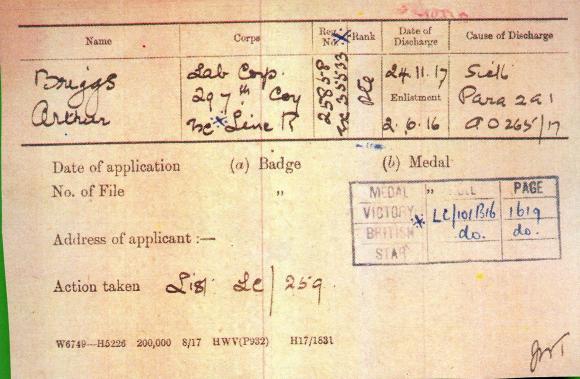 Name Corps Reg. No. Rank Date of Discharge Cause of Discharge
Briggs Lab Corp. 25858 Pte 24.11.17 Sick
Arthur 297th Coy 35533 Enlistment Para 2a1
* Linc R 2.6.16 AO265/17
Date of application (a) Badge (b) Medal
No. of File " "
MEDAL ROLL PAGE
VICTORY * LC/101B16 1619
BRITISH do. do.
STAR
Address of applicant :—
Action taken List LC/259
W6749—H5226 200,000 8/17 HWV(P932) H17/1831